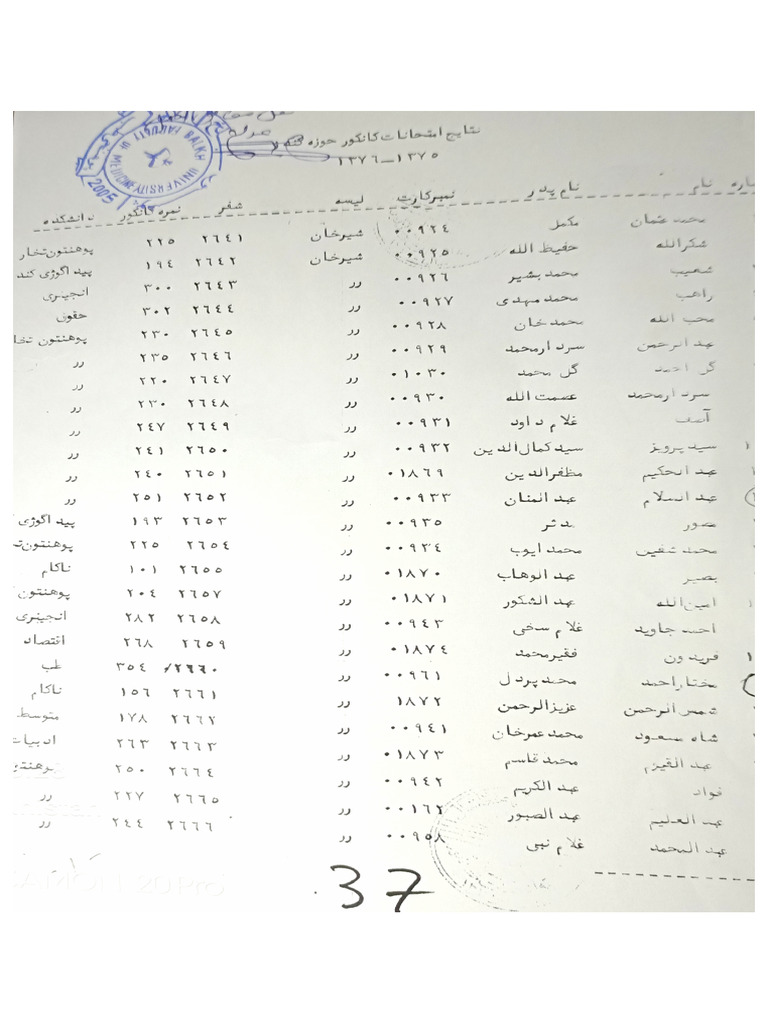 نتایج امتحانات کانکور حوزه کندز
۱۳۷۵-۱۳۷۶
BALKH UNIVERSITY FACULTY OF MEDICINE 2005
نام نام پدر نمبرکارت لیسه شفر نمره کانکور دانشکده
محمد عثمان مکمل ۰۰۹۲٤ شیرخان ۲٦٤۱ ۲۲۵ پوهنتون تخار
شکرالله حفیظ الله ۰۰۹۲۵ شیرخان ۲٦٤۲ ۱۹٤ پیداگوژی کند
شعیب محمدبشیر ۰۰۹۲٦ رر ۲٦٤۳ ۳۰۰ انجینری
راهب محمدمهدی ۰۰۹۲۷ رر ۲٦٤٤ ۳۰۲ حقوق
محب الله محمدخان ۰۰۹۲۸ رر ۲٦٤۵ ۲۳۰ پوهنتون تخا
عبدالرحمن سردارمحمد ۰۰۹۲۹ رر ۲٦٤٦ ۲۳۵ رر
گل احمد گل محمد ۰۱۰۳۰ رر ۲٦٤۷ ۲۲۰ رر
سردارمحمد عصمت الله ۰۰۹۳۰ رر ۲٦٤۸ ۲۳۰ رر
آصف غلام داود ۰۰۹۳۱ رر ۲٦٤۹ ۲٤۷ رر
سید پرویز سیدکمال الدین ۰۰۹۳۲ رر ۲٦۵۰ ۲٤۱ رر
عبدالحکیم مظفرالدین ۰۱۸٦۹ رر ۲٦۵۱ ۲٤۰ رر
عبدالسلام عبدالمنان ۰۰۹۳۳ رر ۲٦۵۲ ۲۵۱ رر
مدثر ۰۰۹۳۵ رر ۲٦۵۳ ۱۹۳ پیداگوژی
محمد شفیق محمدایوب ۰۰۹۳٤ رر ۲٦۵٤ ۲۲۵ پوهنتون تخ
بصیر عبدالوهاب ۰۱۸۷۰ رر ۲٦۵۵ ۱۰۱ ناکام
امین الله عبدالشکور ۰۱۸۷۱ رر ۲٦۵۷ ۲۰٤ پوهنتون
احمد جاوید غلام سخی ۰۰۹٤۳ رر ۲٦۵۸ ۲۸۲ انجینری
فریدون فقیرمحمد ۰۱۸۷٤ رر ۲٦۵۹ ۲٦۸ اقتصاد
مختاراحمد محمدپردل ۰۰۹٦۱ رر ۲٦٦۰ ۳۵٤ طب
شمس الرحمن عزیزالرحمن ۱۸۷۲ رر ۲٦٦۱ ۱۵٦ ناکام
شاه مسعود محمدعمرخان ۰۰۹٤۱ رر ۲٦٦۲ ۱۷۸ متوسط
عبدالقیوم محمدقاسم ۰۱۸۷۳ رر ۲٦٦۳ ۲٦۳ ادبیات
فواد عبدالکریم ۰۰۹٤۲ رر ۲٦٦٤ ۲۵۰ پوهنتون
عبدالعلیم عبدالصبور ۰۰۱٦۲ رر ۲٦٦۵ ۲۲۷ رر
عبدالمحمد غلام نبی ۰۰۹۵۸ رر ۲٦٦٦ ۲٤٤ رر
37